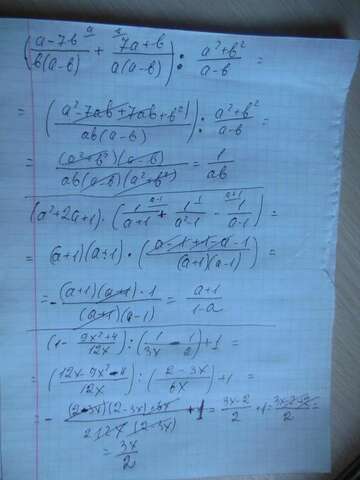 ((a-7b)/(b(a-b)) + (7a+b)/(a(a-b))) : (a²+b²)/(a-b) =
= ((a²-7ab+7ab+b²)/(ab(a-b))) : (a²+b²)/(a-b) =
= ((a²+b²)(a-b))/(ab(a-b)(a²+b²)) = 1/ab
(a²+2a+1)·(1/(a+1) + 1/(a²-1) - 1/(a-1)) =
= (a+1)(a+1)·((a-1+1-a-1)/((a+1)(a-1))) =
= -((a+1)(a+1)·1)/((a+1)(a-1)) = (a+1)/(1-a)
(1- (9x²+4)/12x) : (1/3x - 1/2) +1 =
= ((12x-9x²-4)/12x) : ((2-3x)/6x) +1 =
= - ((2-3x)(2-3x)·6x)/(2 12x (2-3x)) +1 = (3x-2)/2 +1 = (3x-2+2)/2 =
= 3x/2